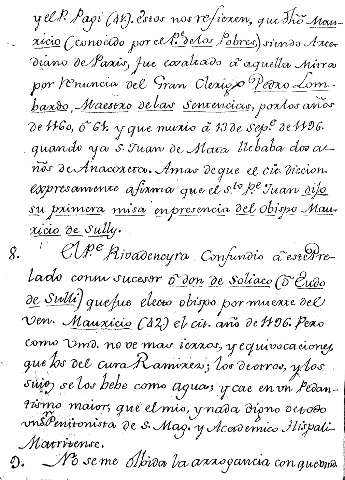 y el P. Pagi (41.) Estos nos refieren, que dho Mau-
ricio (conocido por el Pe. de los Pobres) siendo Arce-
diano de Paris, fue exaltado â aquella Mitra
por renuncia del Gran Clerigo Pedro Lom-
bardo, Maestro de las Sentencias, por los años
de 1160, ô 61. y que murio â 13 de Sepe. de 1196.
quando ya S. Juan de Mata llebaba dos a-
ños de Anacoreta. Amas de que el cit. discion.
expresamente afirma que el sto. Pe. Juan dijo
su primera misa en presencia del Obispo Mau-
ricio de Sully.
8. El Pe. Rivadeneyra Confundio â este Pre-
lado con su sucesor ô don de Soliaco (ô Eudo
de Sulli) que fue electo obispo por muerte del
Ven. Mauricio (42.) el cit. año de 1196. Pero
como vmd. no ve mas ierros, y equivocaciones
que ls del cura Ramirez; los de otros, y los
suios, se los bebe como agua; y cae en vn Pedan-
tismo maior, que el mio, y nada digno de todo
vn Penitonista de S. Mag. y Academico Hispali-
Matritense.
9. No se me olbida la arrogancia con que vmd.